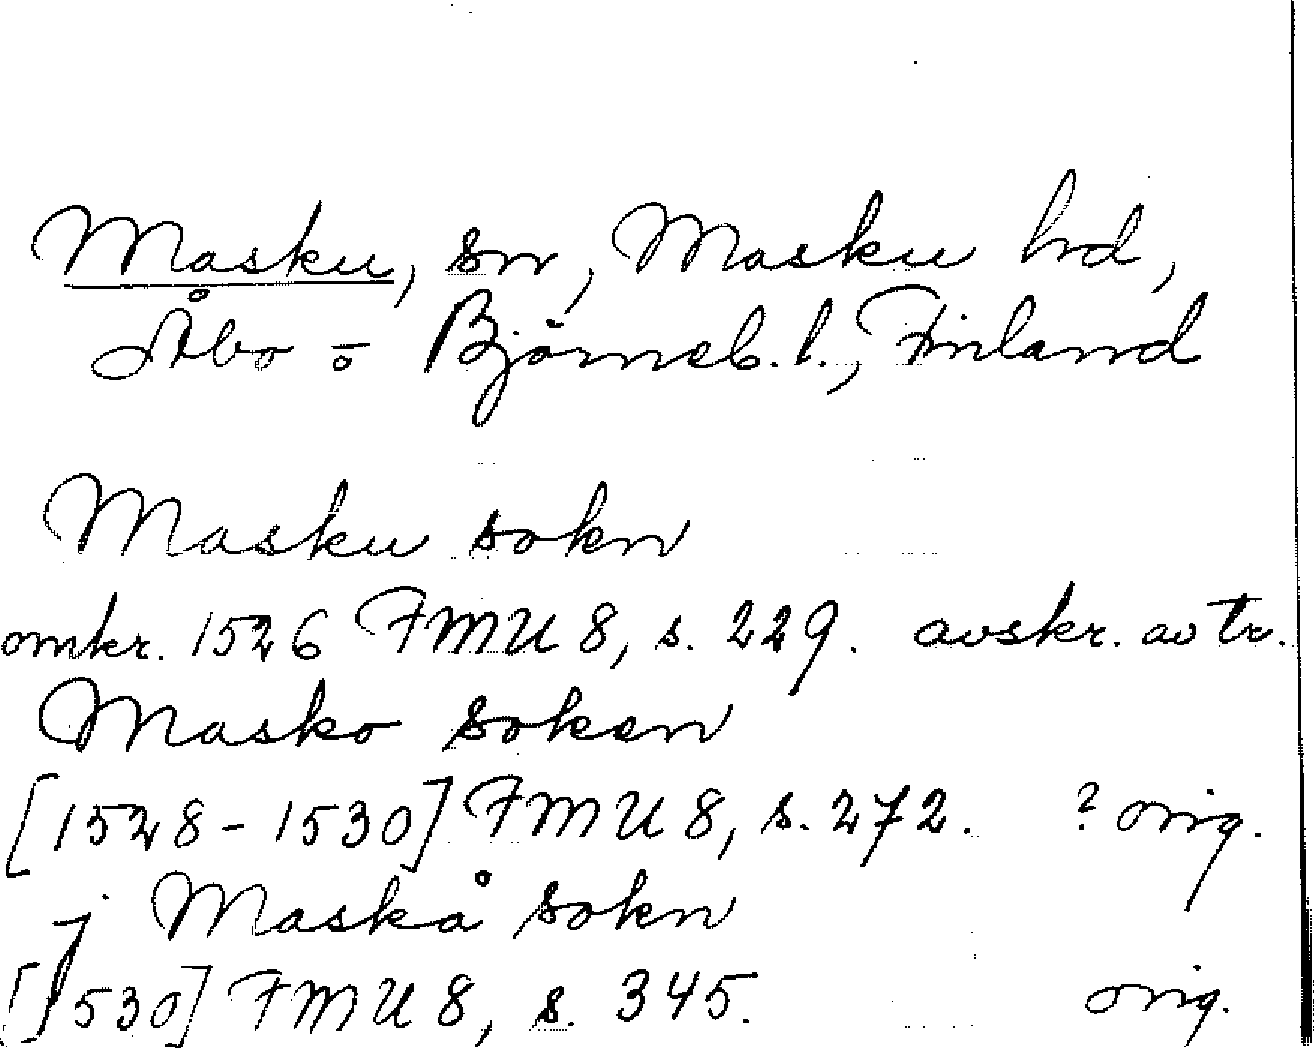 Masku, sn, Masku hd,
Åbo o Björneb. l., Finland
Masku sokn
omkr. 1526 FMU 8, s. 229. avskr. av tr.
Masko soken
[1528-1530] FMU 8, s. 272. ? orig.
j Maskå sokn
[1530] FMU 8, s. 345. orig.